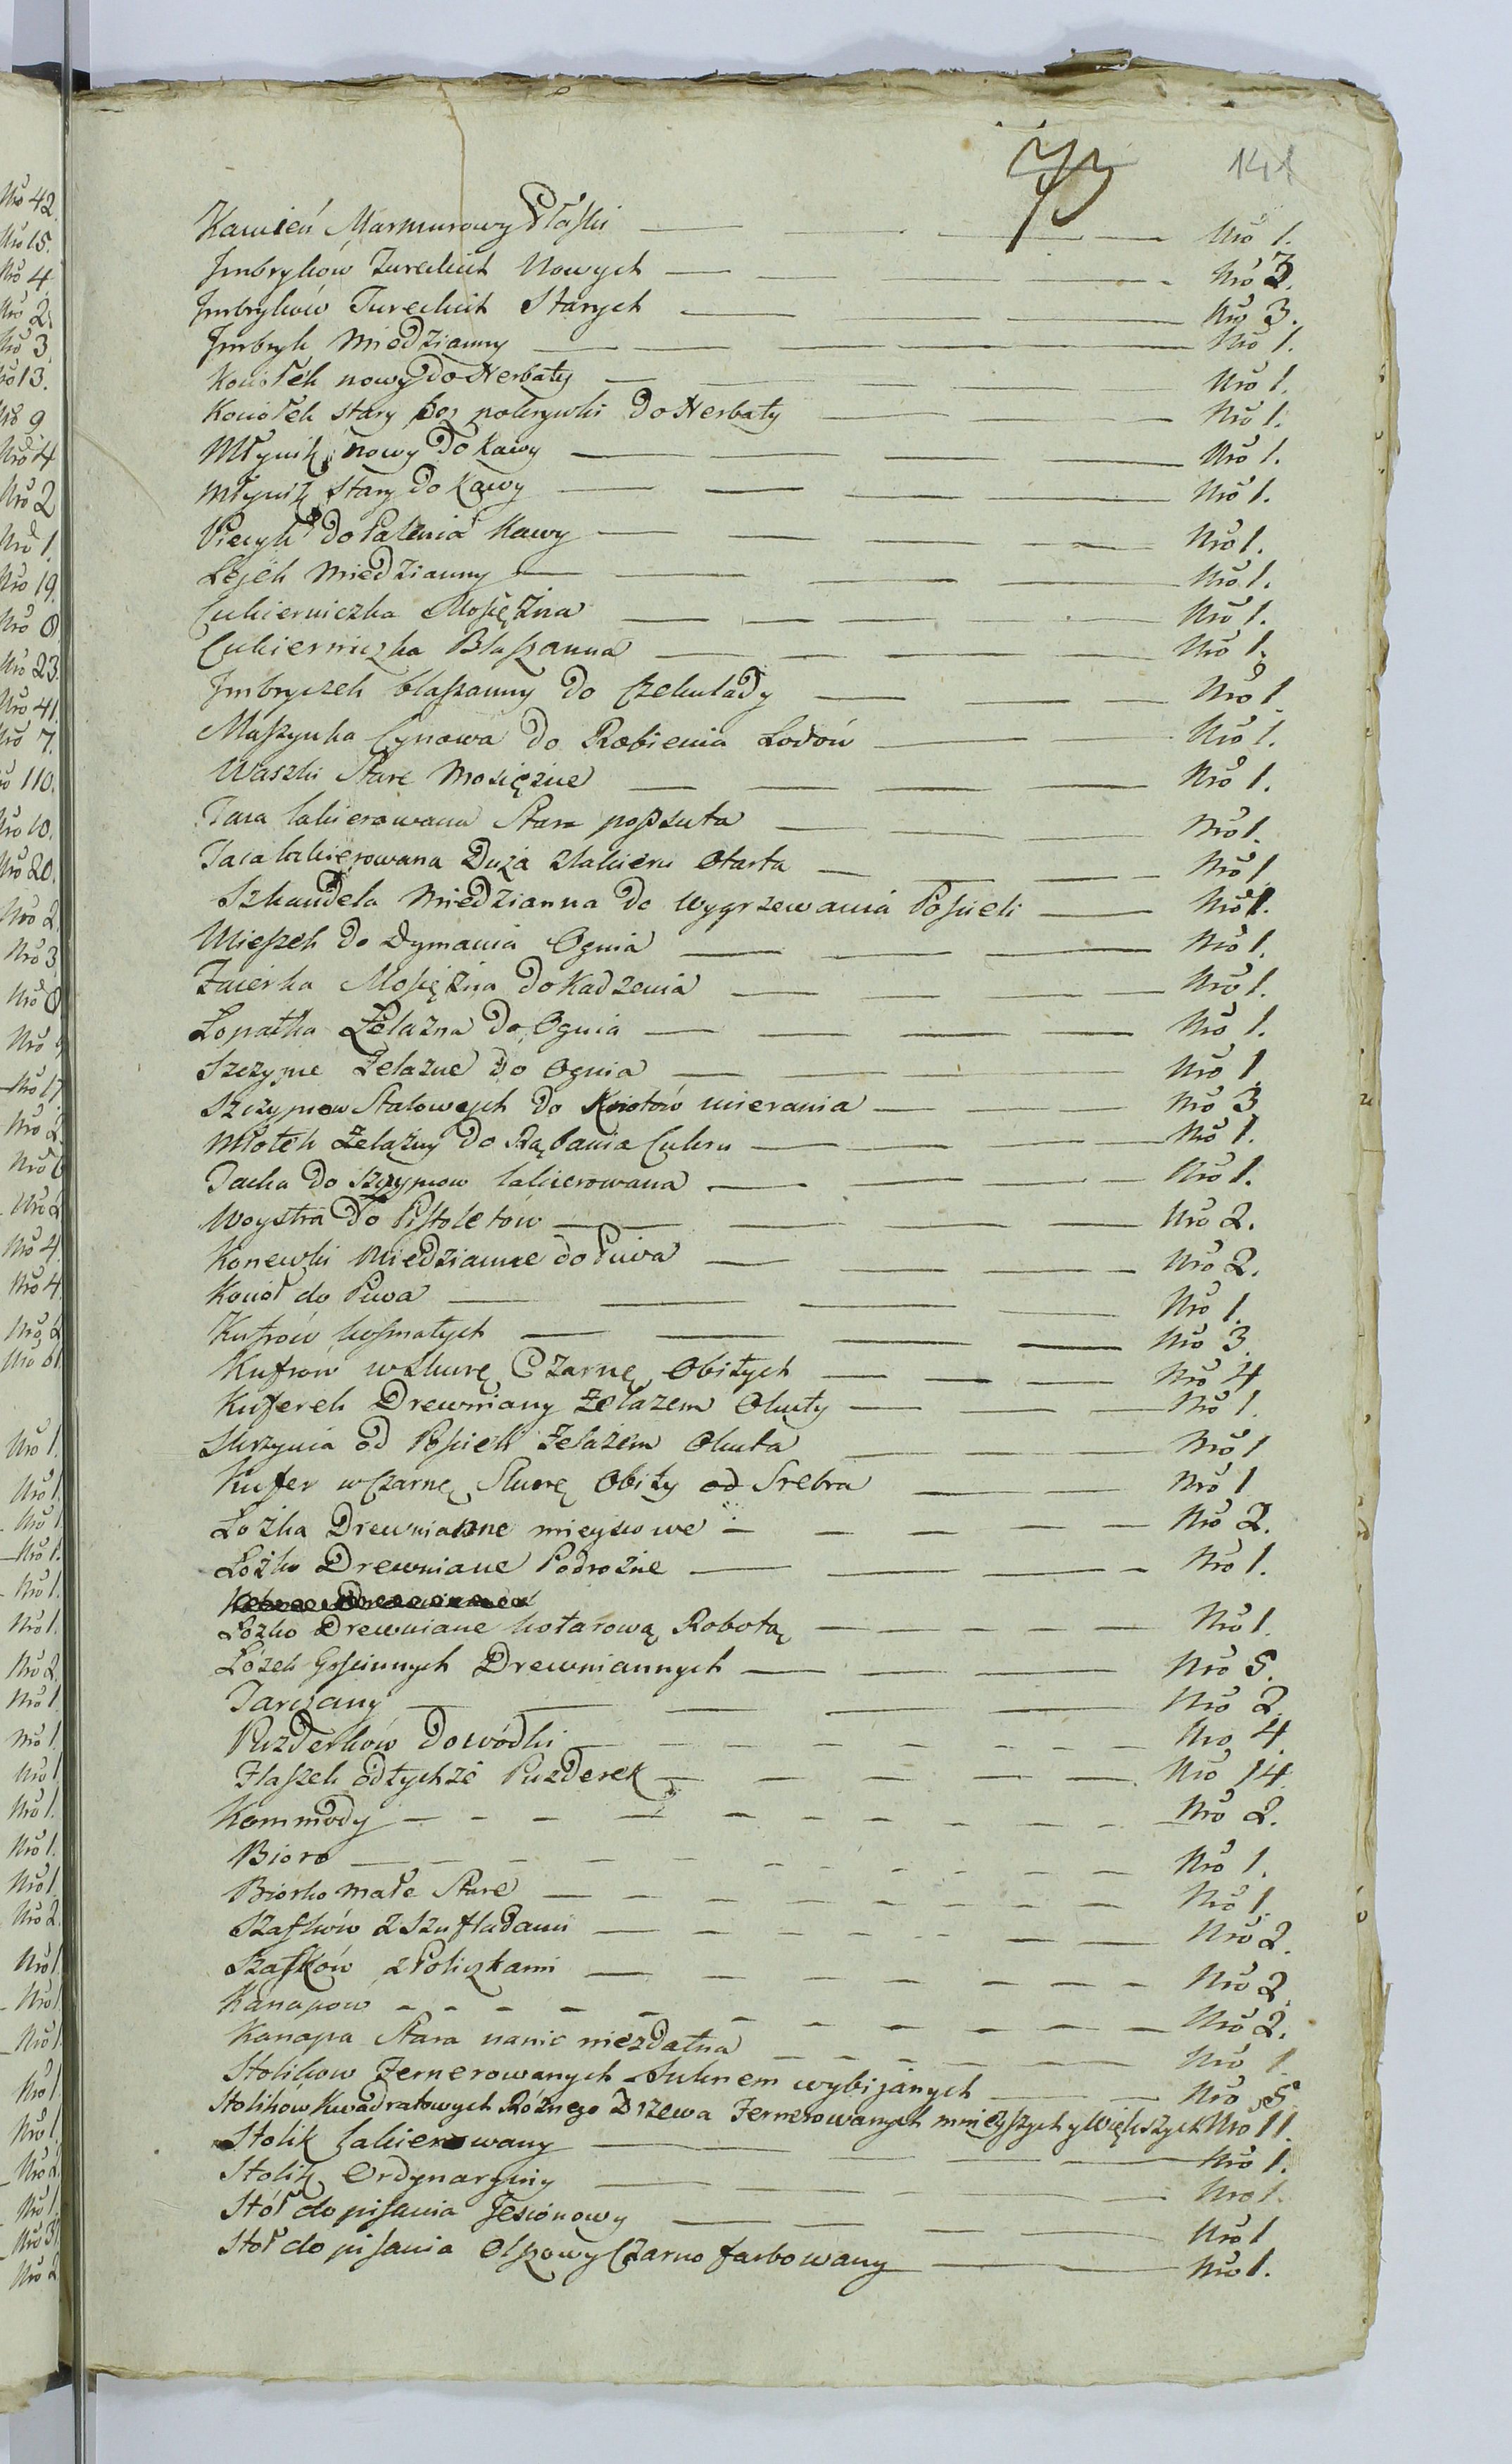 73 141
Kamień Marmurowy Płaski — Nro 1.
Jmbryków Tureckich Nowych — Nro 3.
Jmbryków Tureckich Starych — Nro 3.
Jmbryk Miedzianny — Nro 1.
Kociołek nowy do Herbaty — Nro 1.
Kociołek stary bez pokrywki do Herbaty — Nro 1.
Młynik nowy do Kawy — Nro 1.
Młynik stary do Kawy — Nro 1.
Piecyk do Palenia Kawy — Nro 1.
Lejek Miedzianny — Nro 1.
Cukierniczka Mosiężna — Nro 1.
Cukierniczka Blaszanna — Nro 1.
Jmbryczek blaszanny do Czekulady — Nro 1
Maszynka Cynowa do Robienia Lodów — Nro 1.
Waszki Stare Mosiężne — Nro 1.
Taca lakierowana Stara popsuta — Nro 1.
Taca lakierowana Duża zlakieru Otarta — Nro 1
Szkandela Miedzianna do wygrzewania Pościeli — Nro 1.
Mieszek do Dymania Ognia — Nro 1.
Fajerka Mosiężna do Kadzenia — Nro 1.
Łopatka Żelazna do Ognia — Nro 1.
Szczypce Żelazne do Ognia — Nro 1
Szczypcow Stalowych do Knotów ucierania — Nro 3
Młotek Żelazny do Rąbania Cukru — Nro 1.
Tacka do szczypcow lakierowana — Nro 1.
Woystra do Pistoletów — Nro 2.
Konewki Miedzianne do Piwa — Nro 2.
Kocioł do Piwa — Nro 1.
Kufrów kosmatych — Nro 3.
Kufrów wskurę Czarnę Obitych — Nro 4
Kuferek Drewniany Żelazem Okuty — Nro 1.
Skrzynia od Pościeli Żelazem Okuta — Nro 1
Kufer w Czarnę Skurę Obity od Srebra — Nro 1
Łożka Drewnianne mieyscowe — Nro 2.
Łożko Drewniane Podrożne — Nro 1.
Łożko Drewniane kotarową Robotą — Nro 1.
Łóżek Gościnnych Drewniannych — Nro 5.
Tarczany — Nro 2.
Puzderków do wódki — Nro 4.
Flaszek odtychże Puzderek — Nro 14.
Kommody — Nro 2.
Bioro — Nro 1.
Biorko małe Stare — Nro 1.
Szafków z Szufladami — Nro 2.
Szafków z Policzkami — Nro 2.
Kanapow — Nro 2.
Kanapa Stara nanic niezdatna — Nro 1
Stolikow Fernerowanych Suknem wybijanych — Nro 5
Stolików Kwadratowych Różnego Drzewa Fernerowanych mnieyszych y Większych Nro 11.
Stolik lakierowany — Nro 1.
Stolik Ordynaryiny — Nro 1.
Stół do pisania Jesionowy — Nro 1
Stoł do pisania Olszowy Czarno farbowany — Nro 1.